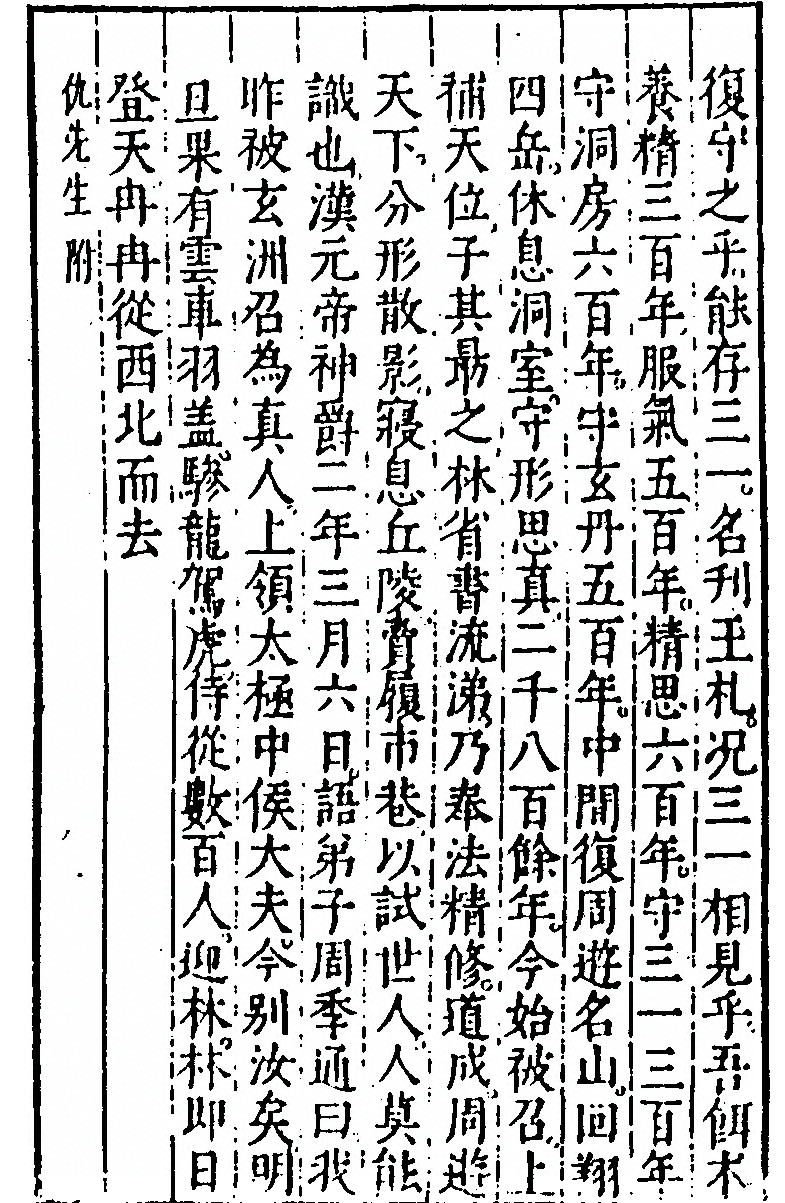 復守之乎能存三一名刊玉札況三一相見乎吾餌朮
養精三百年服氣五百年精思六百年守三一三百年
守洞房六百年守玄丹五百年中間復周遊名山回翔
四岳休息洞室守形思真二千八百餘年今始被召上
補天位子其勗之林省書流涕乃奉法精修道成周遊
天下分形散影寢息丘陵賣履市巷以試世人人莫能
識也漢元帝神爵二年三月六日語弟子周季通曰我
昨被玄洲召為真人上領太極中侯大夫今别汝矣明
旦果有雲車羽盖驂龍駕虎侍從數百人迎林林即日
登天冉冉從西北而去
仇先生 附